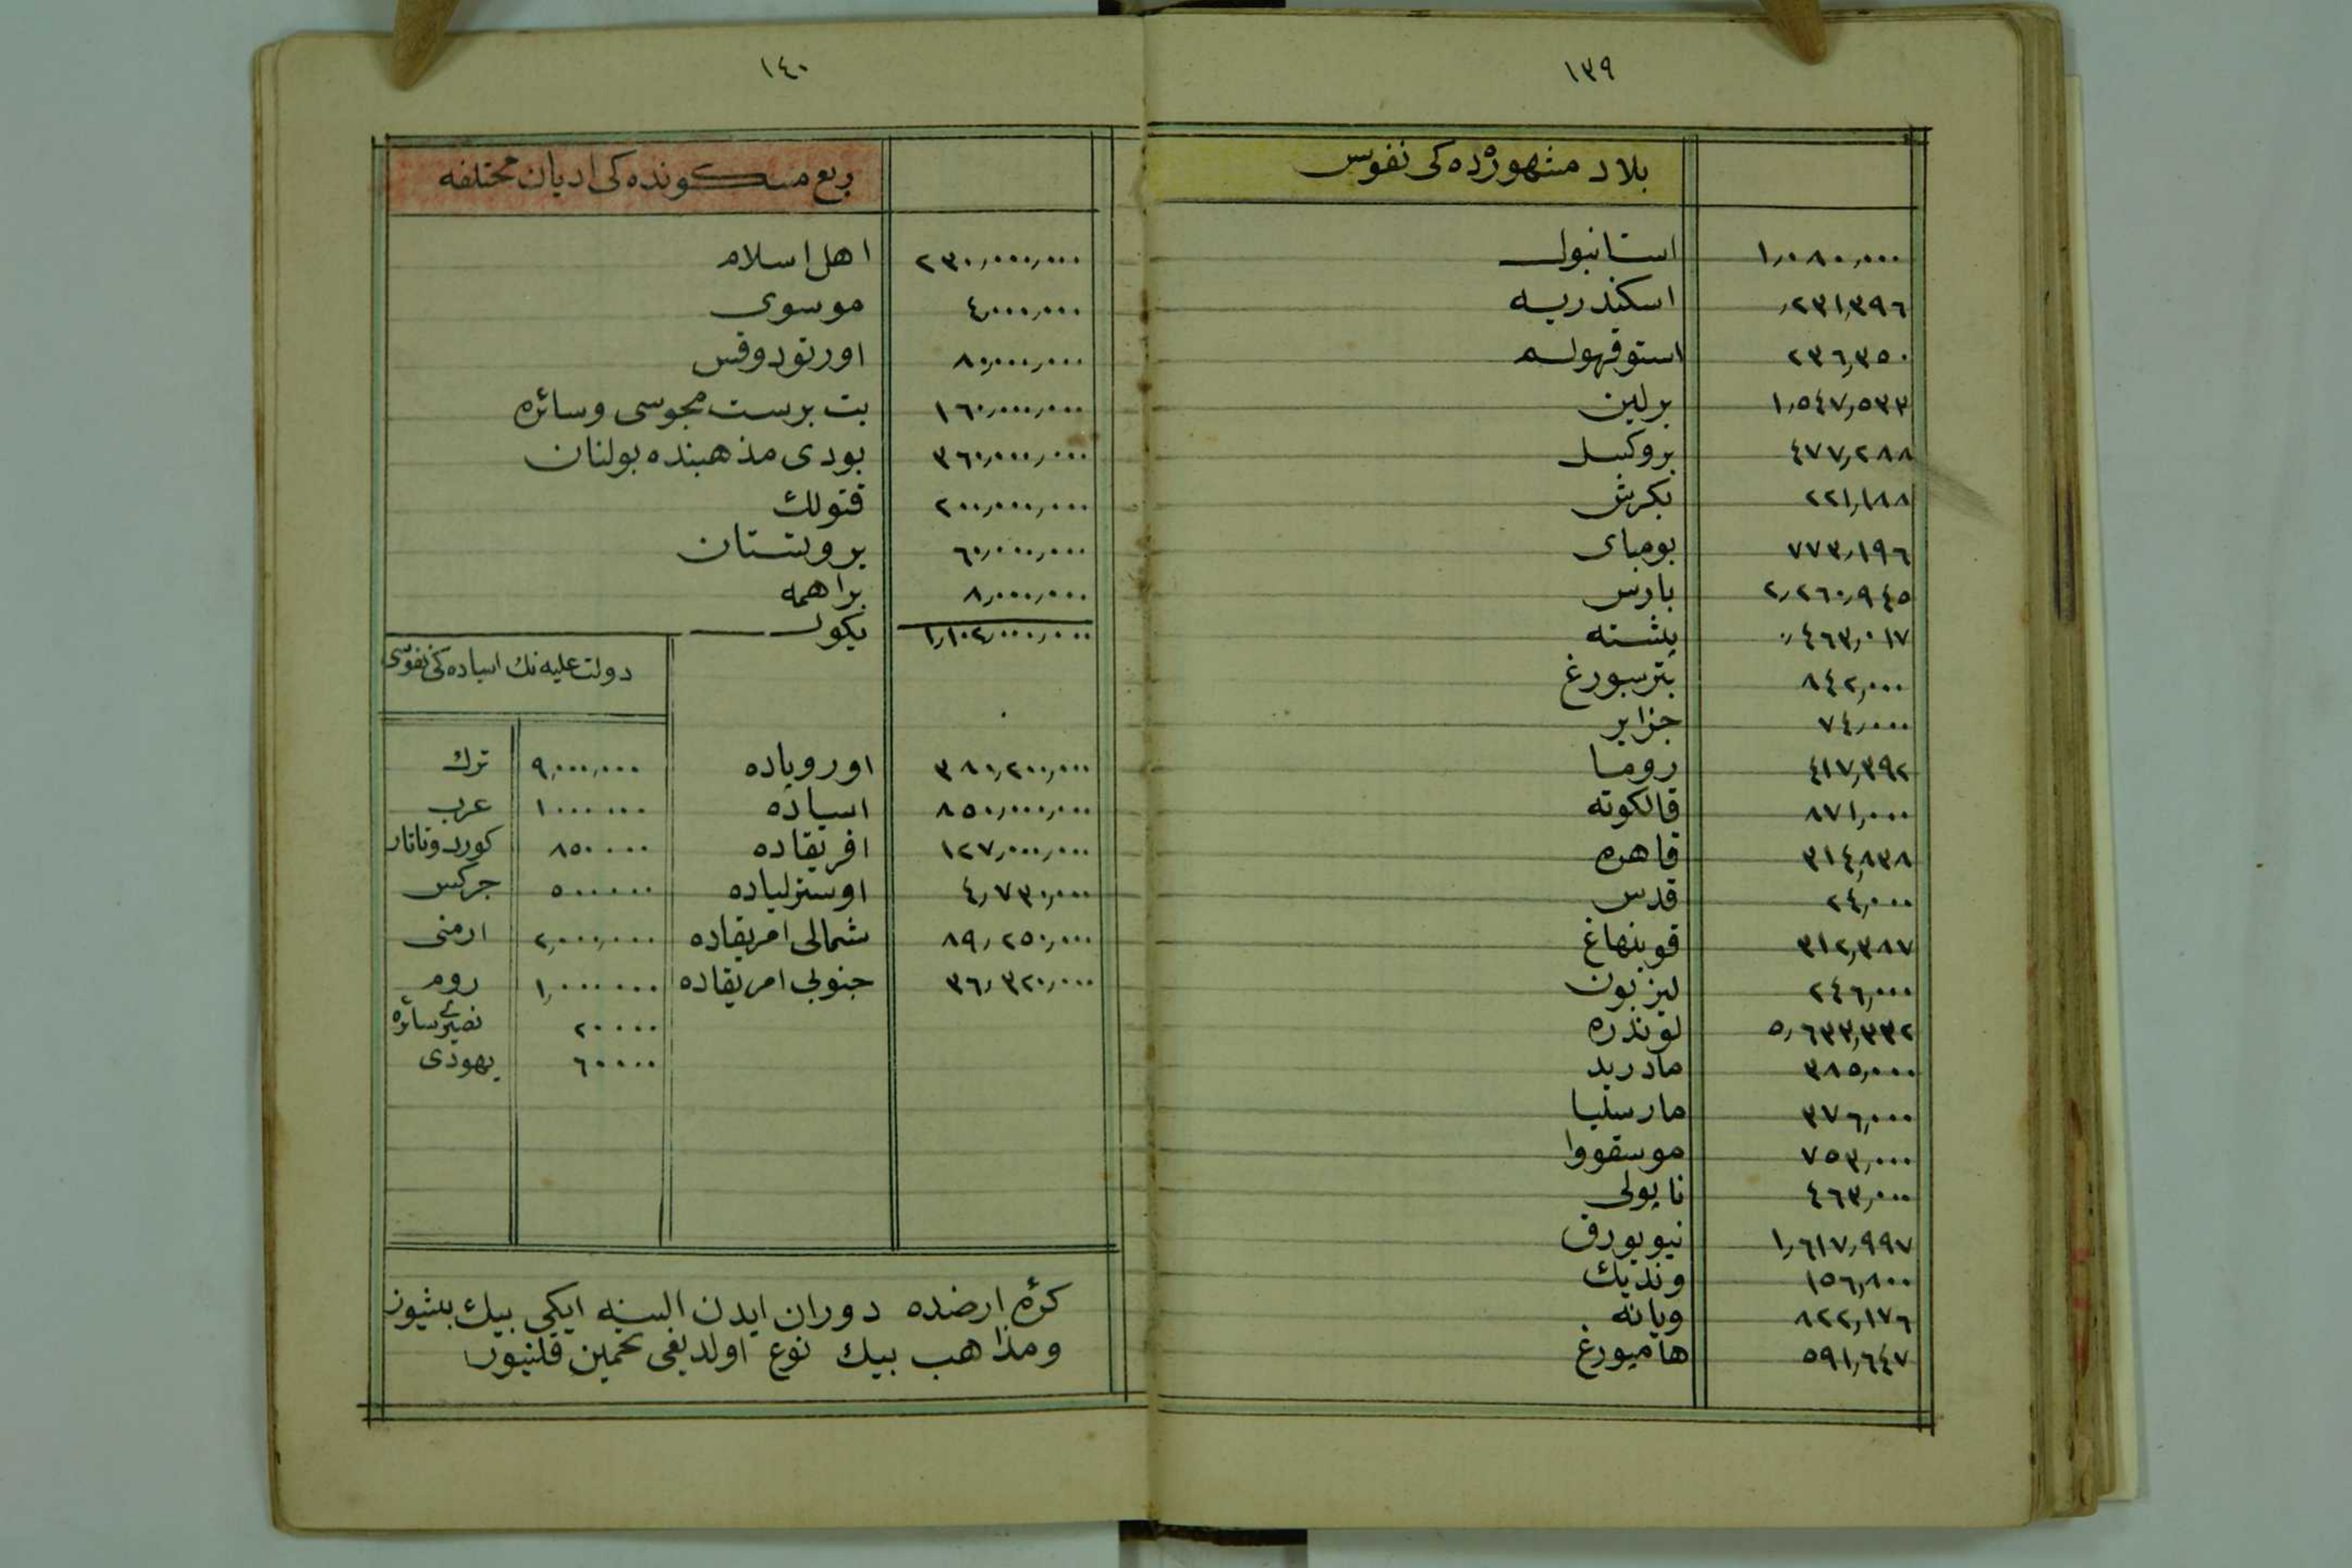 ١٣٩
بلاد مشهوره‌ده كی نفوس
استانبول ١,٠٨٠,٠٠٠
اسكندریه ٢٣١,٣٩٦
استوقهولم ٢٣٦,٣٥٠
برلین ١,٥٤٧,٥٣٣
بروكسل ٤٧٧,٢٨٨
بكرش ٢٢١,١٨٨
بومبای ٧٧٣,١٩٦
پارس ٢,٢٦٠,٩٤٥
پشته ٤٦٣,٠١٧
پترسبورغ ٨٤٢,٠٠٠
جزایر ٧٤,٠٠٠
روما ٤١٧,٣٩٢
قالكوته ٨٧١,٠٠٠
قاهره ٣١٤,٨٣٨
قدس ٢٤,٠٠٠
قوپنهاغ ٣١٢,٣٨٧
لیزبون ٢٤٦,٠٠٠
لوندره ٥,٦٣٣,٣٣٢
مادرید ٣٨٥,٠٠٠
مارسلیا ٣٧٦,٠٠٠
موسقووا ٧٥٣,٠٠٠
ناپولی ٤٦٣,٠٠٠
نیویورق ١,٦١٧,٩٩٧
وندیك ١٥٦,٨٠٠
ویانه ٨٢٢,١٧٦
هامبورغ ٥٩١,٦٤٧
١٤٠
ربع مسكونده كی ادیان مختلفه
٢٣٠,٠٠٠,٠٠٠ اهل اسلام
٤,٠٠٠,٠٠٠ موسوی
٨٠,٠٠٠,٠٠٠ اورتودوقس
١٦٠,٠٠٠,٠٠٠ بت پرست مجوسی وسائره
٣٦٠,٠٠٠,٠٠٠ بودی مذهبنده بولنان
٢٠٠,٠٠٠,٠٠٠ قتولك
٦٠,٠٠٠,٠٠٠ پروتستان
٨,٠٠٠,٠٠٠ براهمه
١,١٠٢,٠٠٠,٠٠٠ یكون
٣٨٠,٢٠٠,٠٠٠ اوروپاده
٨٥٠,٠٠٠,٠٠٠ اسیاده
١٢٧,٠٠٠,٠٠٠ افریقاده
٤,٧٣٠,٠٠٠ اوسترلیاده
٨٩,٢٥٠,٠٠٠ شمالی امریقاده
٣٦,٣٢٠,٠٠٠ جنوبی امریقاده
دولت علیه نك اسیاده كی نفوسی
٩,٠٠٠,٠٠٠ ترك
١٠٠٠٠٠٠ عرب
٨٥٠٠٠٠ كورد وتاتار
٥٠٠٠٠٠ چركس
٢,٠٠٠,٠٠٠ ارمنی
١,٠٠٠٠٠٠ روم
٢٠٠٠٠٠ نصیری سائره
٦٠٠٠٠ یهودی
كرهٔ ارضده دوران ایدن السنه ایكی بیك بشیوز
ومذاهب بیك نوع اولدیغی تخمین قلنیور